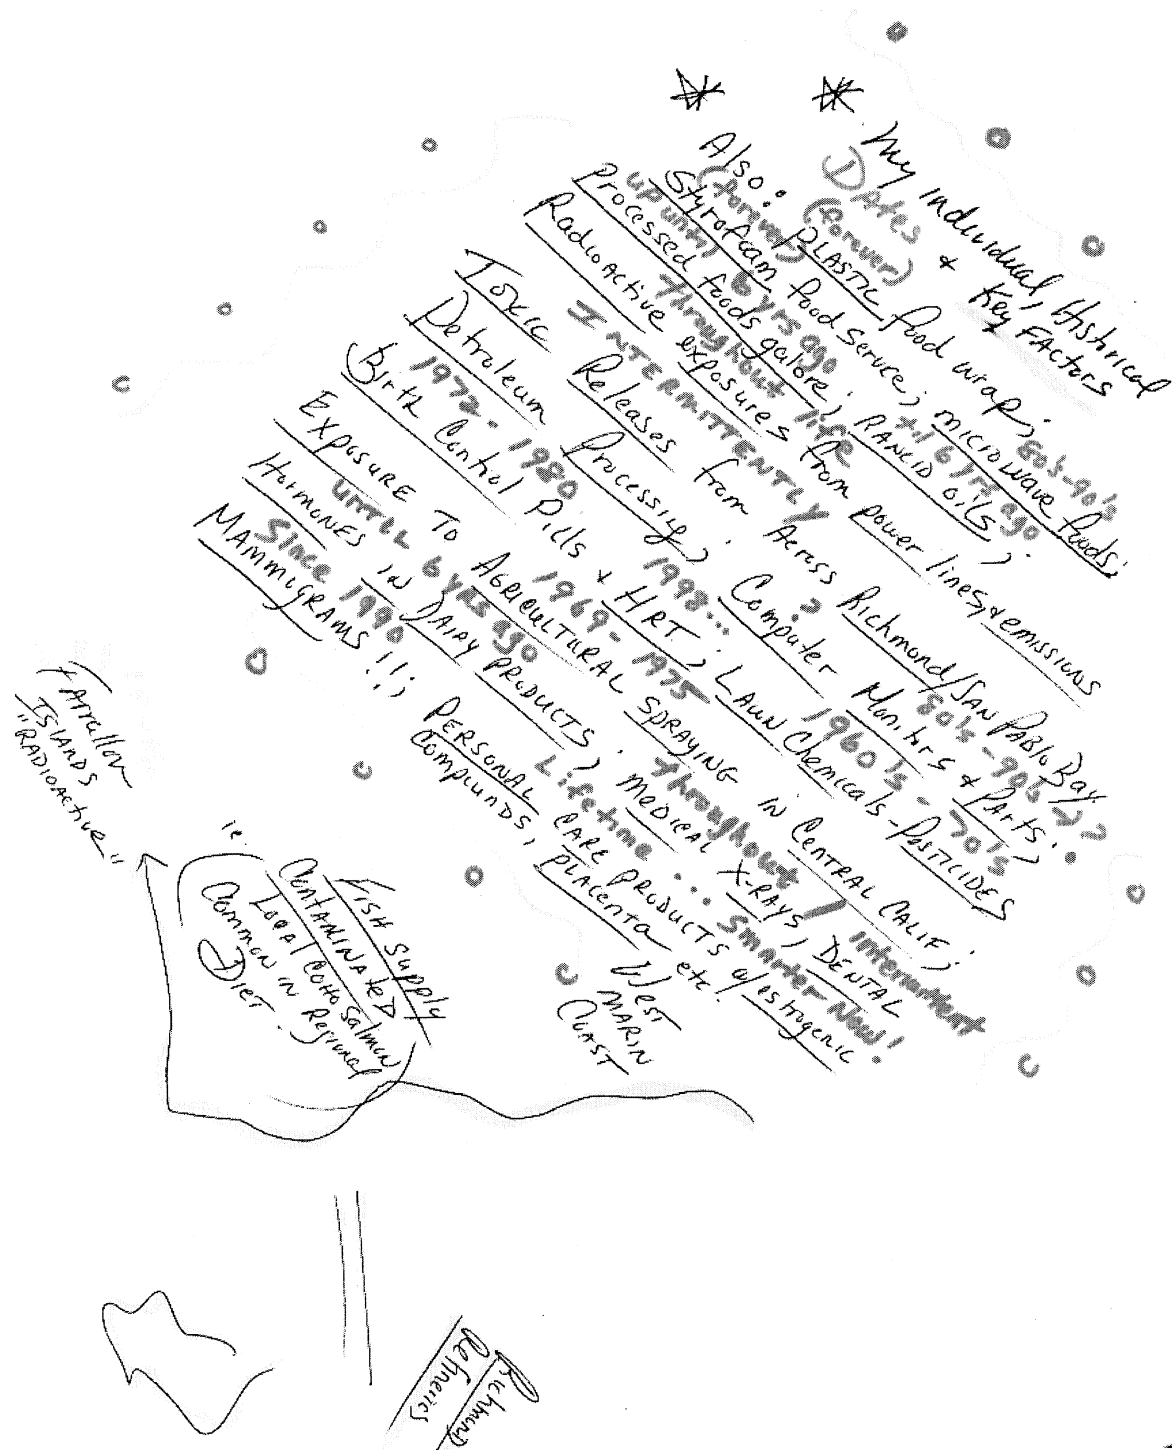 * My individual, Historical
Dates & Key Factors
(forever)
* Also: PLASTIC food wrap; 80's-90's
(forever)
Styrofoam food service; microwave foods;
up until 6 yrs ago til 6 yrs ago
Processed foods galore; RANCID oils;
Throughout life
RadioActive exposures from power lines, & emissions
INTERMITTENTLY
Toxic Releases from Across Richmond/SAN PABLO Bay
? 80's-90's ??
Petroleum Processing; Computer Monitors & Parts;
1972-1980 1998... 1960's-70's
(Birth Control Pills & HRT; LAWN Chemicals-PESTICIDES
1969-1975
EXPOSURE TO AGRICULTURAL SPRAYING IN CENTRAL CALIF;
until 6 yrs ago Throughout / intermittent
HORMONES IN DAIRY PRODUCTS; MEDICAL X-RAYS, DENTAL
Since 1990 Lifetime... Smarter Now!
MAMMYGRAMS!!; PERSONAL CARE PRODUCTS w/estrogenic
COMPOUNDS, PLACENTA etc.
West
MARIN
COAST
Farrallon
ISLANDS
"RADIOACTIVE"
ie.
FISH SUPPLY
CONTAMINATED
LOCAL COHO Salmon
COMMON IN Regional
DIET.
Richmond
Refineries